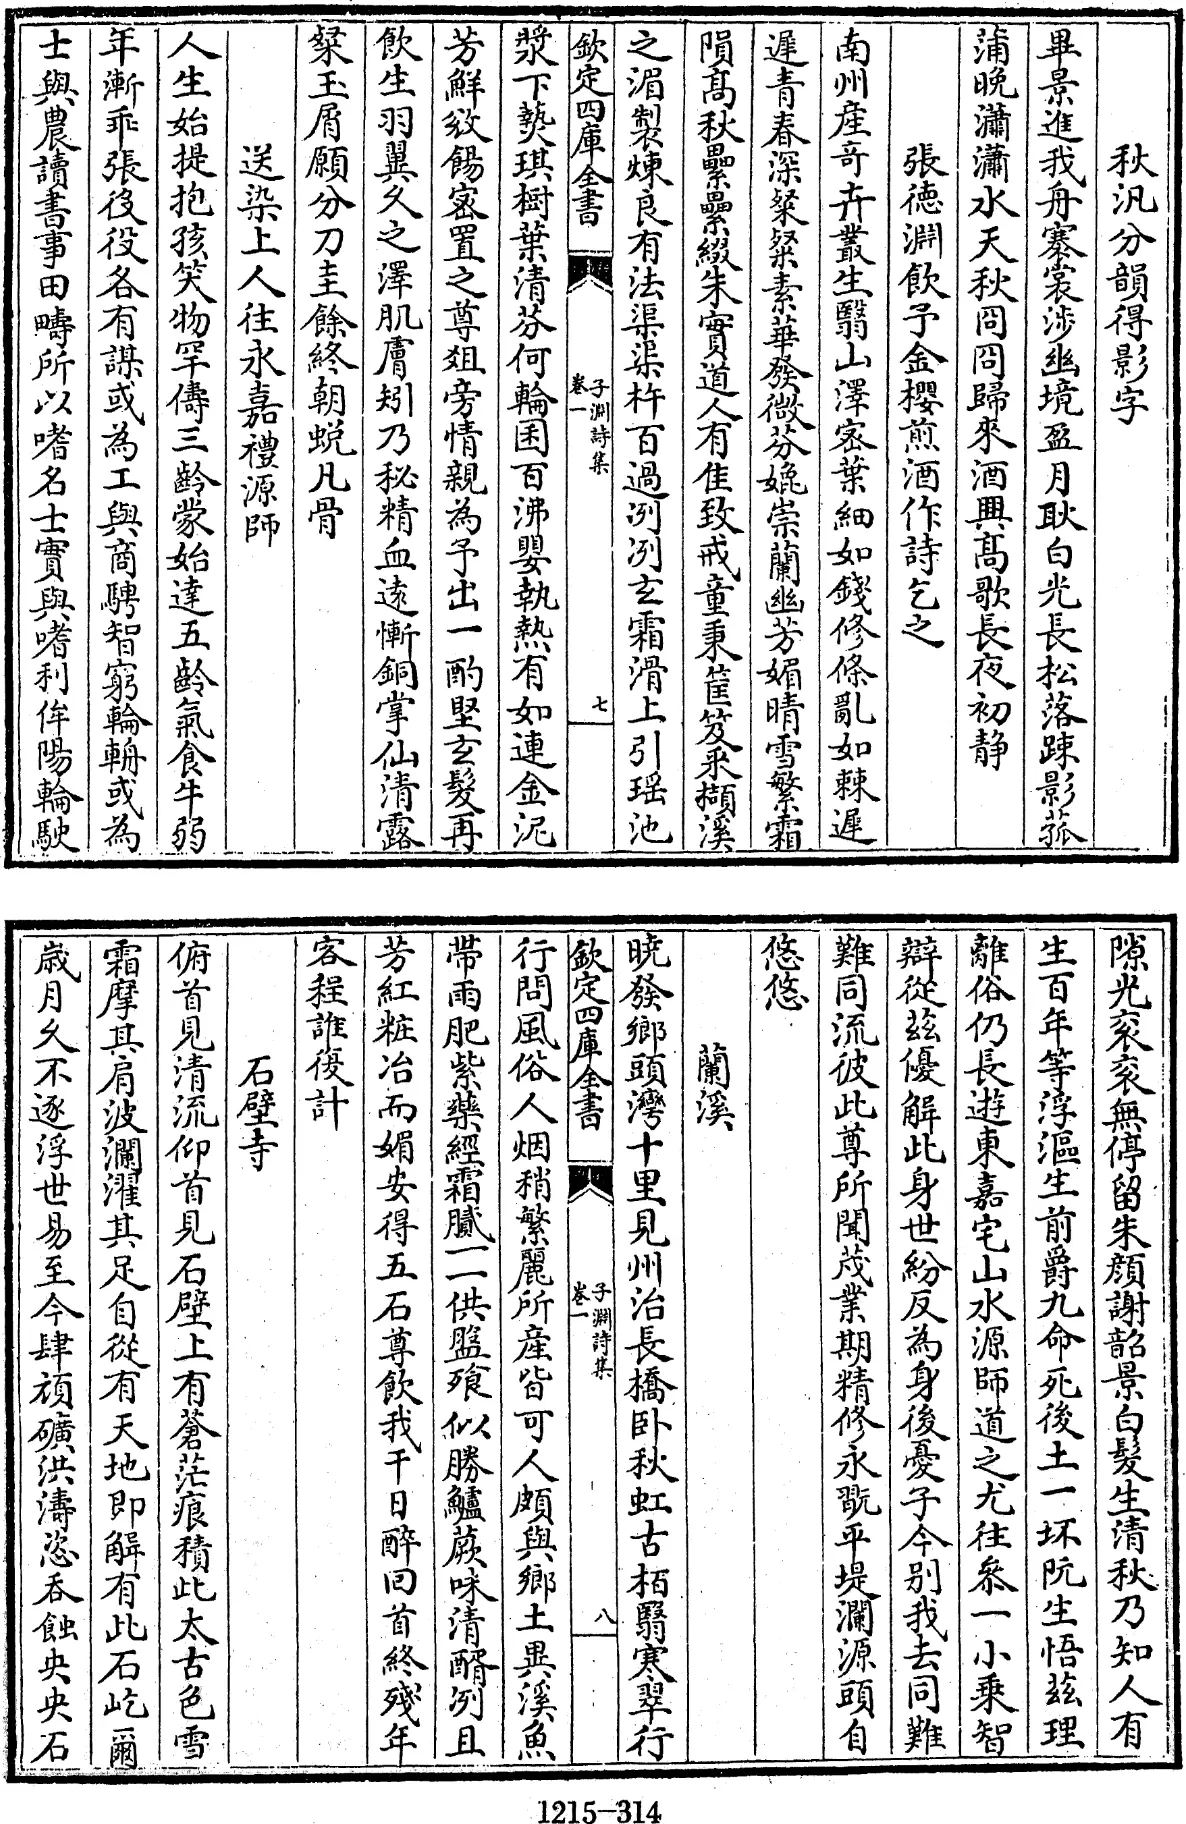 秋汎分韻得影字
畢景進我舟寨裳涉幽境盈月耿白光長松落踈影菰
蒲晚瀟瀟水天秋冏冏歸來酒興髙歌長夜初静
張徳淵飲予金櫻煎酒作詩乞之
南州産竒卉叢生翳山澤宻葉細如錢修條亂如棘遲
遲青春深粲粲素華發微芬媲崇蘭幽芳媚晴雪繁霜
隕髙秋纍纍綴朱實道人有佳致戒童秉筐笈采擷溪
之湄製煉良有法渠渠杵百過冽冽玄霜滑上引瑶池
欽定四庫全書
子淵詩集
卷一
七
漿下爇琪樹葉清芬何輪囷百沸嬰執熱有如連金泥
芳鮮效餳宻置之尊爼旁情親為予出一酌堅玄髮再
飲生羽翼久之澤肌膚矧乃秘精血逺慚銅掌仙清露
粲玉屑願分刀圭餘終朝蛻凡骨
送染上人往永嘉禮源師
人生始提抱孩笑物罕儔三齡蒙始達五齡氣食牛弱
年漸乖張役役各有謀或為工與商騁智窮輪輈或為
士與農讀書事田疇所以嗜名士實與嗜利侔陽輪駛
隙光衮衮無停留朱顔謝韶景白髮生清秋乃知人有
生百年等浮漚生前爵九命死後土一坏阮生悟兹理
離俗仍長遊東嘉宅山水源師道之尤往叅一小乗智
辯從兹優解此身世紛反為身後憂子今别我去同難
難同流彼此尊所聞茂業期精修永翫平堤瀾源頭自
悠悠
蘭溪
曉發鄉頭灣十里見州治長橋卧秋虹古栢翳寒翠行
欽定四庫全書
子淵詩集
卷一
八
行問風俗人烟稍繁麗所産皆可人頗與鄉土異溪魚
帶雨肥紫藥經霜膩一一供盤飱似勝鱸蕨味清醑冽且
芳紅粧冶而媚安得五石尊飲我千日醉回首終殘年
客程誰復計
石壁寺
俯首見清流仰首見石壁上有蒼茫痕積此太古色雪
霜摩其肩波瀾濯其足自從有天地即解有此石屹爾
歳月久不逐浮世易至今肆頑礦洪濤恣吞蝕央央石
1215-314